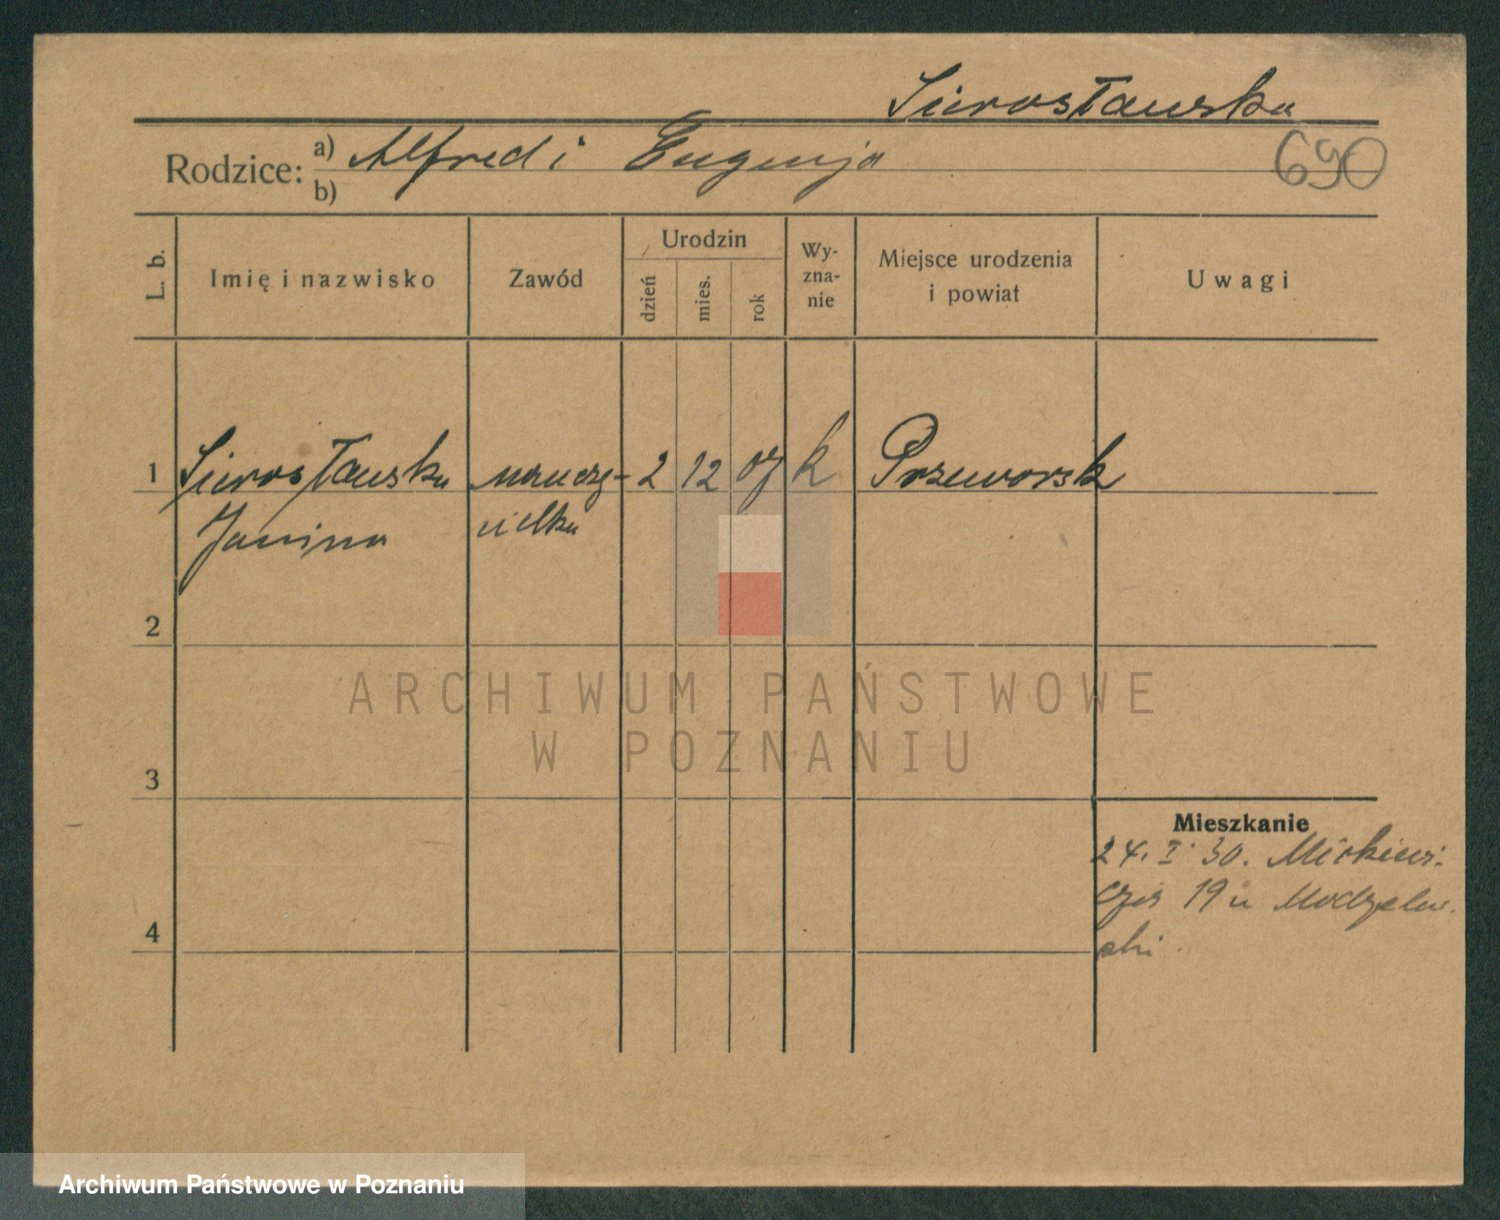 Sierosławska
Rodzice: a) Alfred i Eugenja
b)
690
L. b.
Imię i nazwisko
Zawód
Urodzin
dzień
mies.
rok
Wy-
zna-
nie
Miejsce urodzenia
i powiat
Uwagi
1 Sierosławska nauczy- 2 12 07 k Przeworsk
Janina cielka
2
3
4
Mieszkanie
24. I. 30. Mickiewi-
cza 19 u Modzelew-
ski
ARCHIWUM PAŃSTWOWE
W POZNANIU
Archiwum Państwowe w Poznaniu